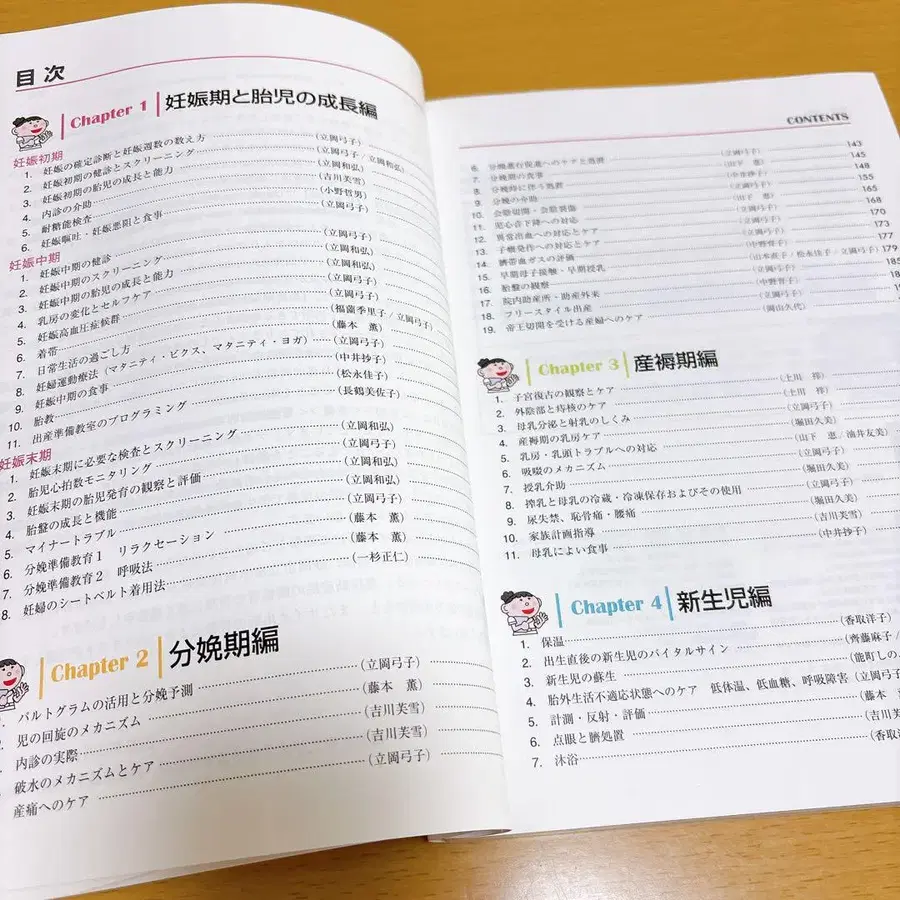 目次
Chapter 1 妊娠期と胎児の成長編
妊娠初期
1. 妊娠の確定診断と妊娠週数の数え方 (立岡弓子)
2. 妊娠初期の健診とスクリーニング (立岡弓子/立岡和弘)
3. 妊娠初期の胎児の成長と能力 (立岡和弘)
4. 内診の介助 (吉川芙雪)
5. 耐糖能検査 (小野哲男)
6. 妊娠嘔吐・妊娠悪阻と食事 (立岡弓子)
妊娠中期
1. 妊娠中期の健診 (立岡弓子)
2. 妊娠中期のスクリーニング (立岡和弘)
3. 妊娠中期の胎児の成長と能力 (立岡和弘)
4. 乳房の変化とセルフケア (立岡弓子)
5. 妊娠高血圧症候群 (立岡弓子)
6. 着帯 (福薗季里子/立岡弓子)
7. 日常生活の過ごし方 (藤本 薫)
8. 妊婦運動療法(マタニティ・ビクス、マタニティ・ヨガ) (立岡弓子)
9. 妊娠中期の食事 (中井抄子)
10. 胎教 (松永佳子)
11. 出産準備教室のプログラミング (長鶴美佐子)
妊娠末期
1. 妊娠末期に必要な検査とスクリーニング (立岡和弘)
2. 胎児心拍数モニタリング (立岡弓子)
3. 妊娠末期の胎児発育の観察と評価 (立岡和弘)
4. 胎盤の成長と機能 (立岡和弘)
5. マイナートラブル (立岡弓子)
6. 分娩準備教育1 リラクセーション (藤本 薫)
7. 分娩準備教育2 呼吸法 (藤本 薫)
8. 妊婦のシートベルト着用法 (一杉正仁)
Chapter 2 分娩期編
パルトグラムの活用と分娩予測 (立岡弓子)
児の回旋のメカニズム (藤本 薫)
内診の実際 (吉川芙雪)
破水のメカニズムとケア (吉川芙雪)
産痛へのケア (立岡弓子)
CONTENTS
6. 分娩進行促進へのケアと指導 (立岡弓子) 143
7. 分娩期の食事 (山下 恵) 145
8. 分娩時に伴う処置 (中井抄子) 148
9. 分娩の介助 (立岡弓子) 155
10. 会陰切開・会陰裂傷 (山下 恵) 165
11. 児心音下降への対応 (立岡弓子) 168
12. 異常出血への対応とケア (立岡弓子) 170
13. 子癇発作への対応とケア (立岡弓子) 173
14. 臍帯血ガスの評価 (中野育子) 177
15. 早期母子接触・早期授乳 (山本直子/松永佳子/立岡弓子) 179
16. 胎盤の観察 (立岡弓子) 185
17. 院内助産所・助産外来 (中野育子)
18. フリースタイル出産 (立岡弓子)
19. 帝王切開を受ける産婦へのケア (岡山久代)
Chapter 3 産褥期編
1. 子宮復古の観察とケア (土川 祥)
2. 外陰部と痔核のケア (土川 祥)
3. 母乳分泌と射乳のしくみ (立岡弓子)
4. 産褥期の乳房ケア (堀田久美)
5. 乳房・乳頭トラブルへの対応 (山下 恵/油井友美)
6. 吸啜のメカニズム (立岡弓子)
7. 授乳介助 (堀田久美)
8. 搾乳と母乳の冷蔵・冷凍保存およびその使用 (立岡弓子)
9. 尿失禁、恥骨痛・腰痛 (堀田久美)
10. 家族計画指導 (吉川芙雪)
11. 母乳によい食事 (中井抄子)
Chapter 4 新生児編
1. 保温 (香取洋子)
2. 出生直後の新生児のバイタルサイン (齊藤麻子/
3. 新生児の蘇生 (能町しの
4. 胎外生活不適応状態へのケア 低体温、低血糖、呼吸障害 (立岡弓
5. 計測・反射・評価 (藤本
6. 点眼と臍処置 (吉川芙
7. 沐浴 (香取